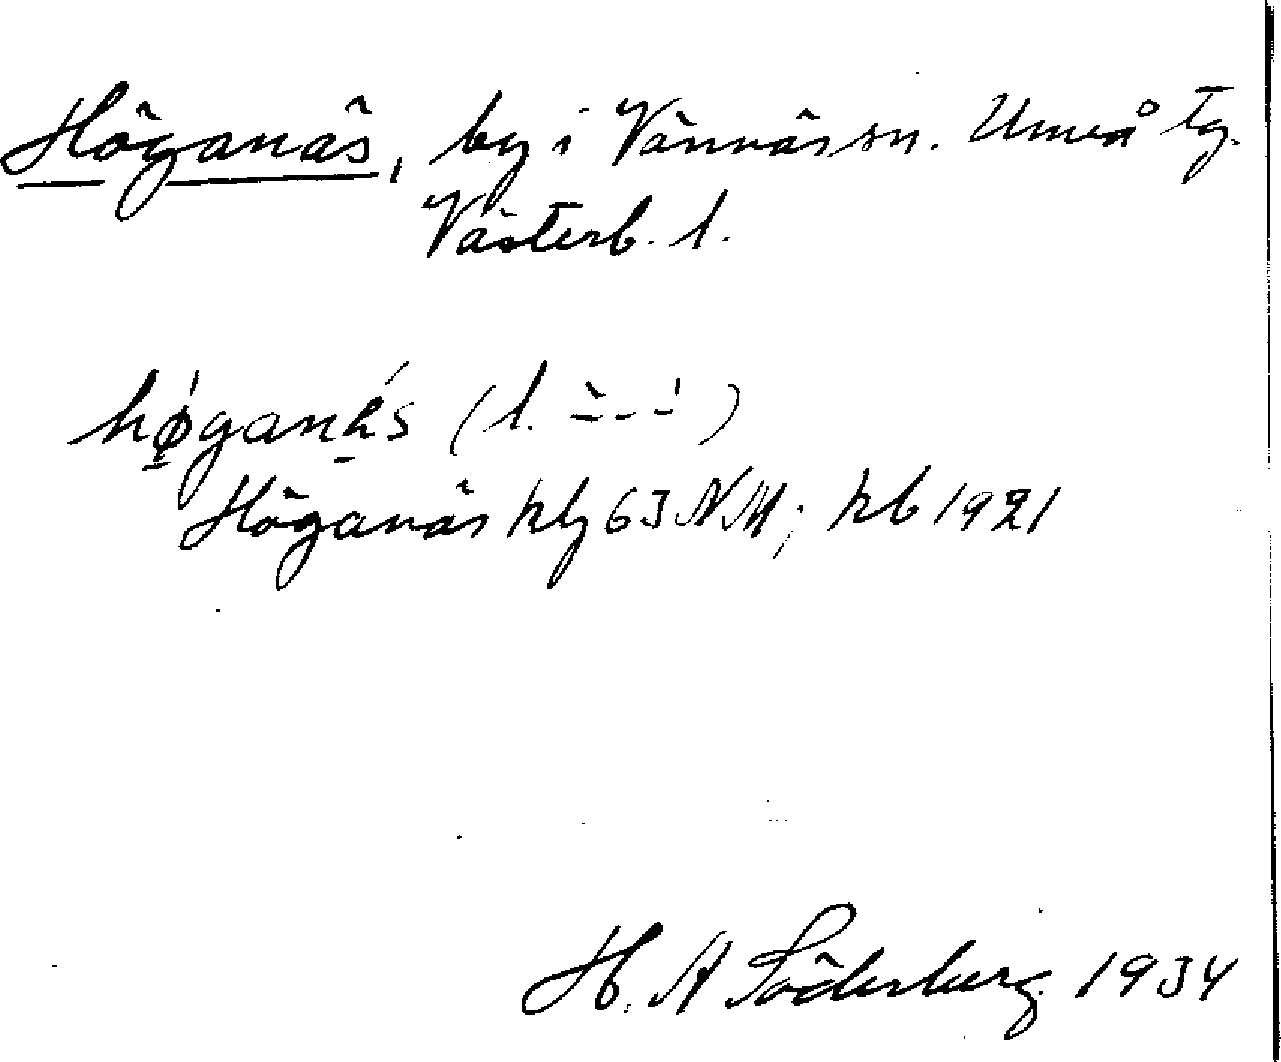 Höganäs, by i Vännäs sn. Umeå tg.
Västerb. l.
høganäs (l. ᷄ – - –́ )
Höganäs kbl 63 NM; kb 1921
H. A Söderberg 1934